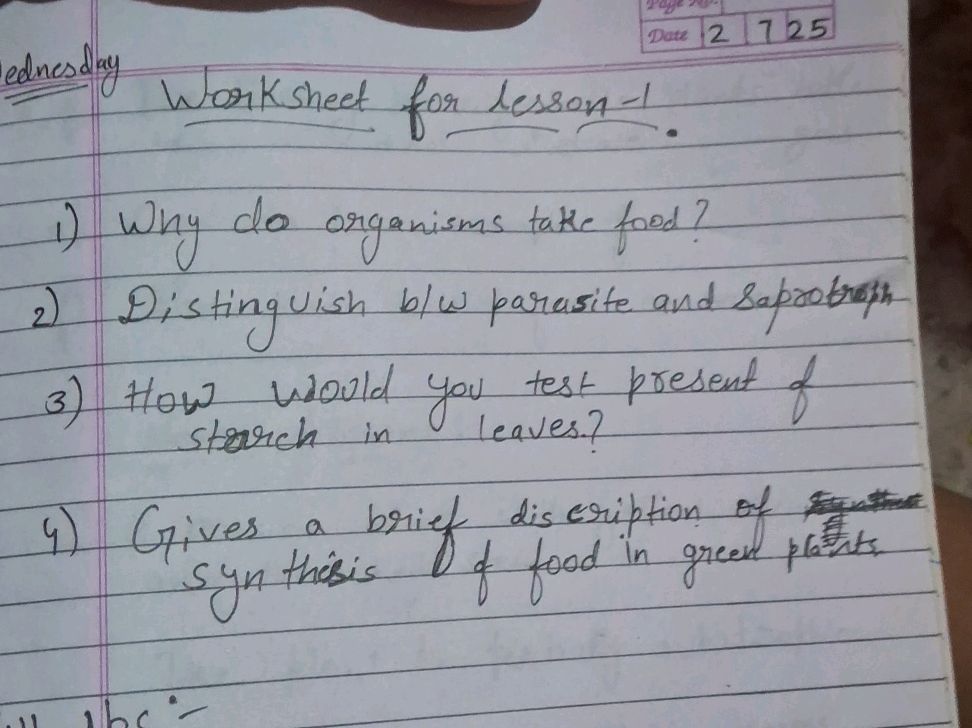 Page No.
Date 2 7 25
ednesday
Worksheet for lesson-1.
1) Why do organisms take food?
2) Distinguish b/w parasite and Saprotroph
3) How would you test present of
starch in leaves.?
4) Gives a brief discription of
synthisis Of food in green plants